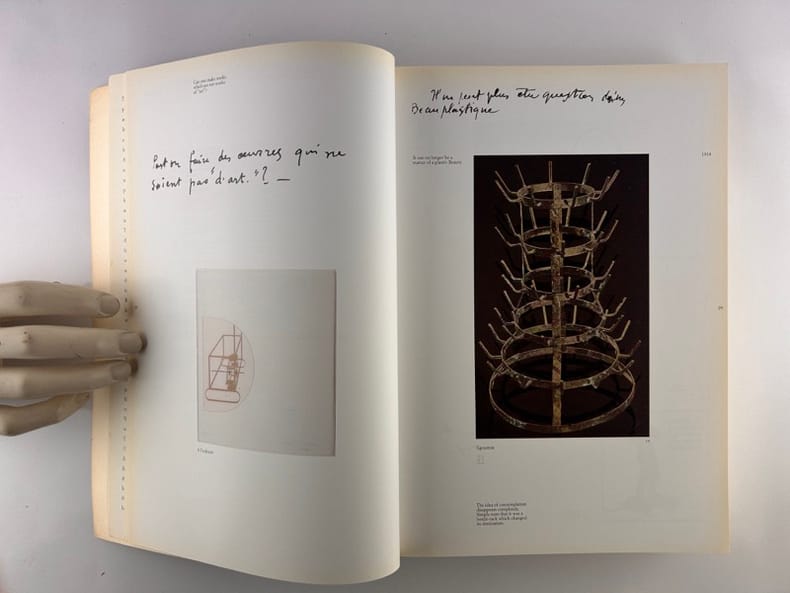 Can you make works
which are not works
of "art"?
Peut on faire des œuvres qui ne
soient pas "d'art."? —
Il ne peut plus être question du
Beau plastique
It can no longer be a
matter of a plastic Beauty
1914
The idea of contemplation
disappears completely.
Simply note that it was a
bottle-rack which changed
its destination.